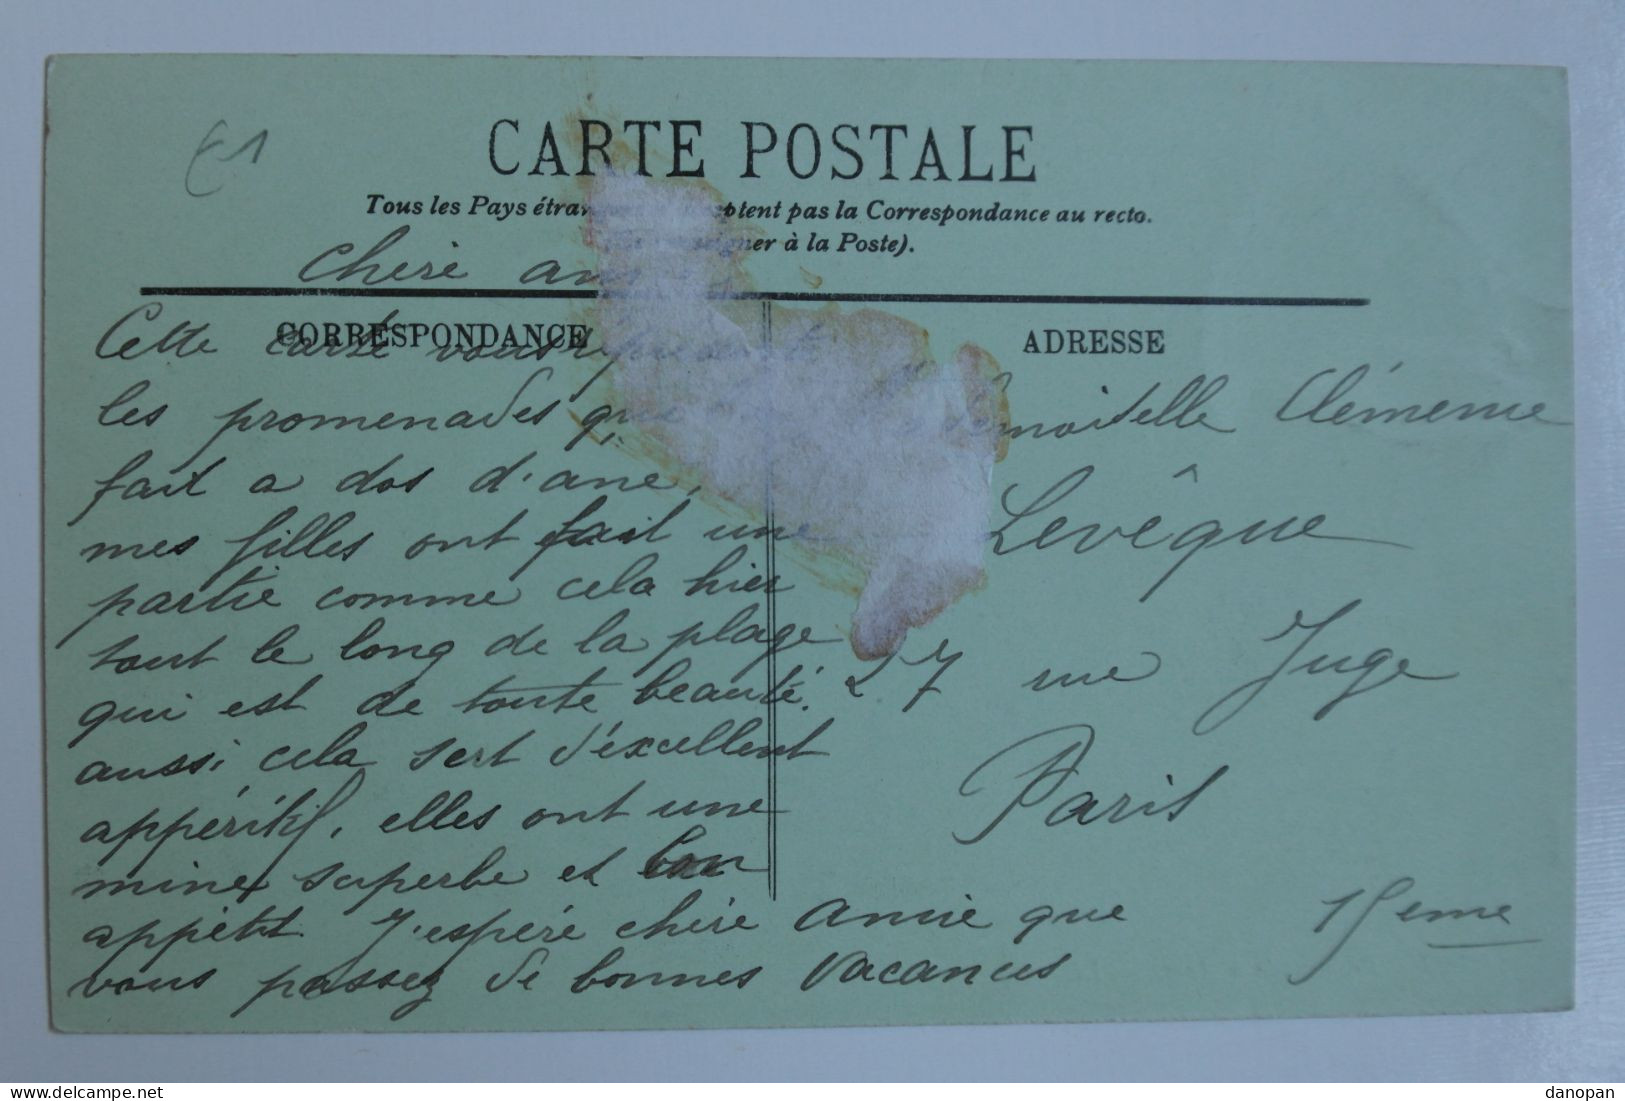 €1
CARTE POSTALE
Tous les Pays étran ceptent pas la Correspondance au recto.
(Se renseigner à la Poste).
Chère am
CORRESPONDANCE
ADRESSE
Cette carte vous représente
les promenades que
fait a dos d'ane,
mes filles ont fait une
partie comme cela hier
tout le long de la plage
qui est de toute beauté.
aussi cela sert d'éxcellent
appéritif. elles ont une
mine superbe et bon
appétit. J'espére chére amie que
vous passez de bonnes vacances
Mademoiselle Clémence
Levêque
27 rue Juge
Paris
15eme
danopan